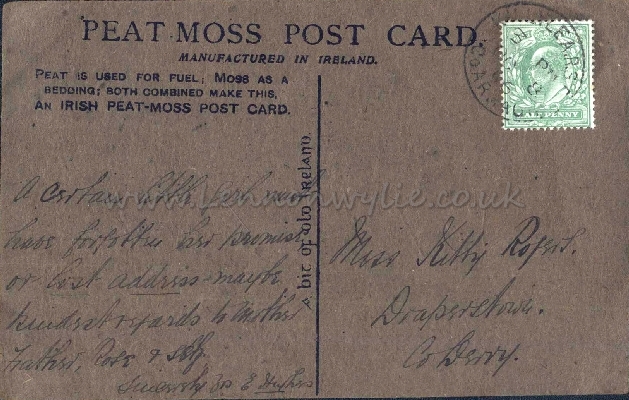 PEAT-MOSS POST CARD.
MANUFACTURED IN IRELAND.
PEAT IS USED FOR FUEL; MOSS AS A
BEDDING; BOTH COMBINED MAKE THIS,
AN IRISH PEAT-MOSS POST CARD.
HALF PENNY
A bit of Old Ireland.
www.lennonwylie.co.uk
A certain little
have forgotten her promise
or lost address maybe
kindest regards to Mother
Father, &
Sincerely E Hughes
Miss Kitty Rogers.
Draperstown.
Co Derry.